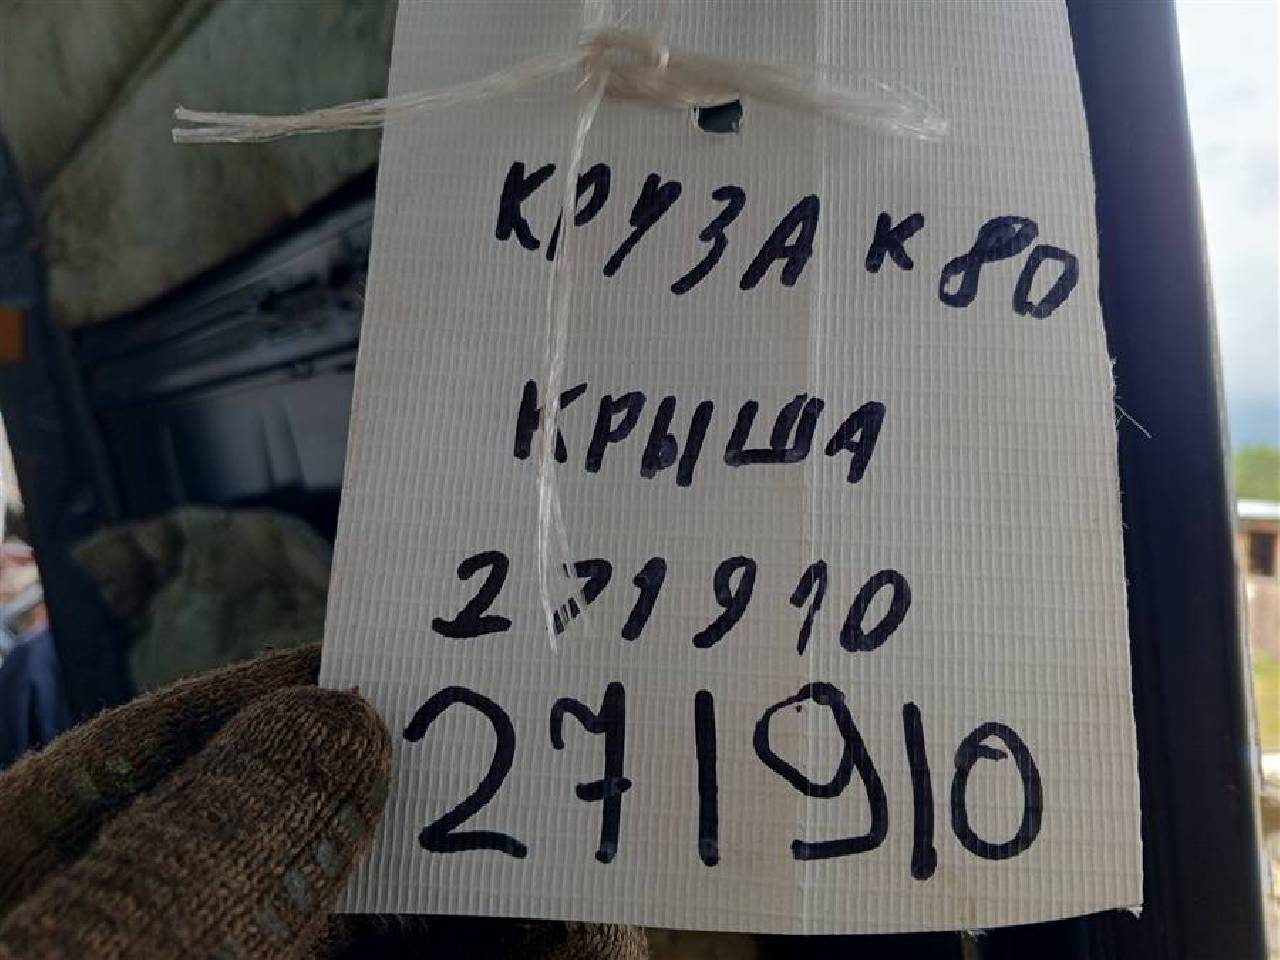 КРУЗА К 80
КРЫША
271910
271910